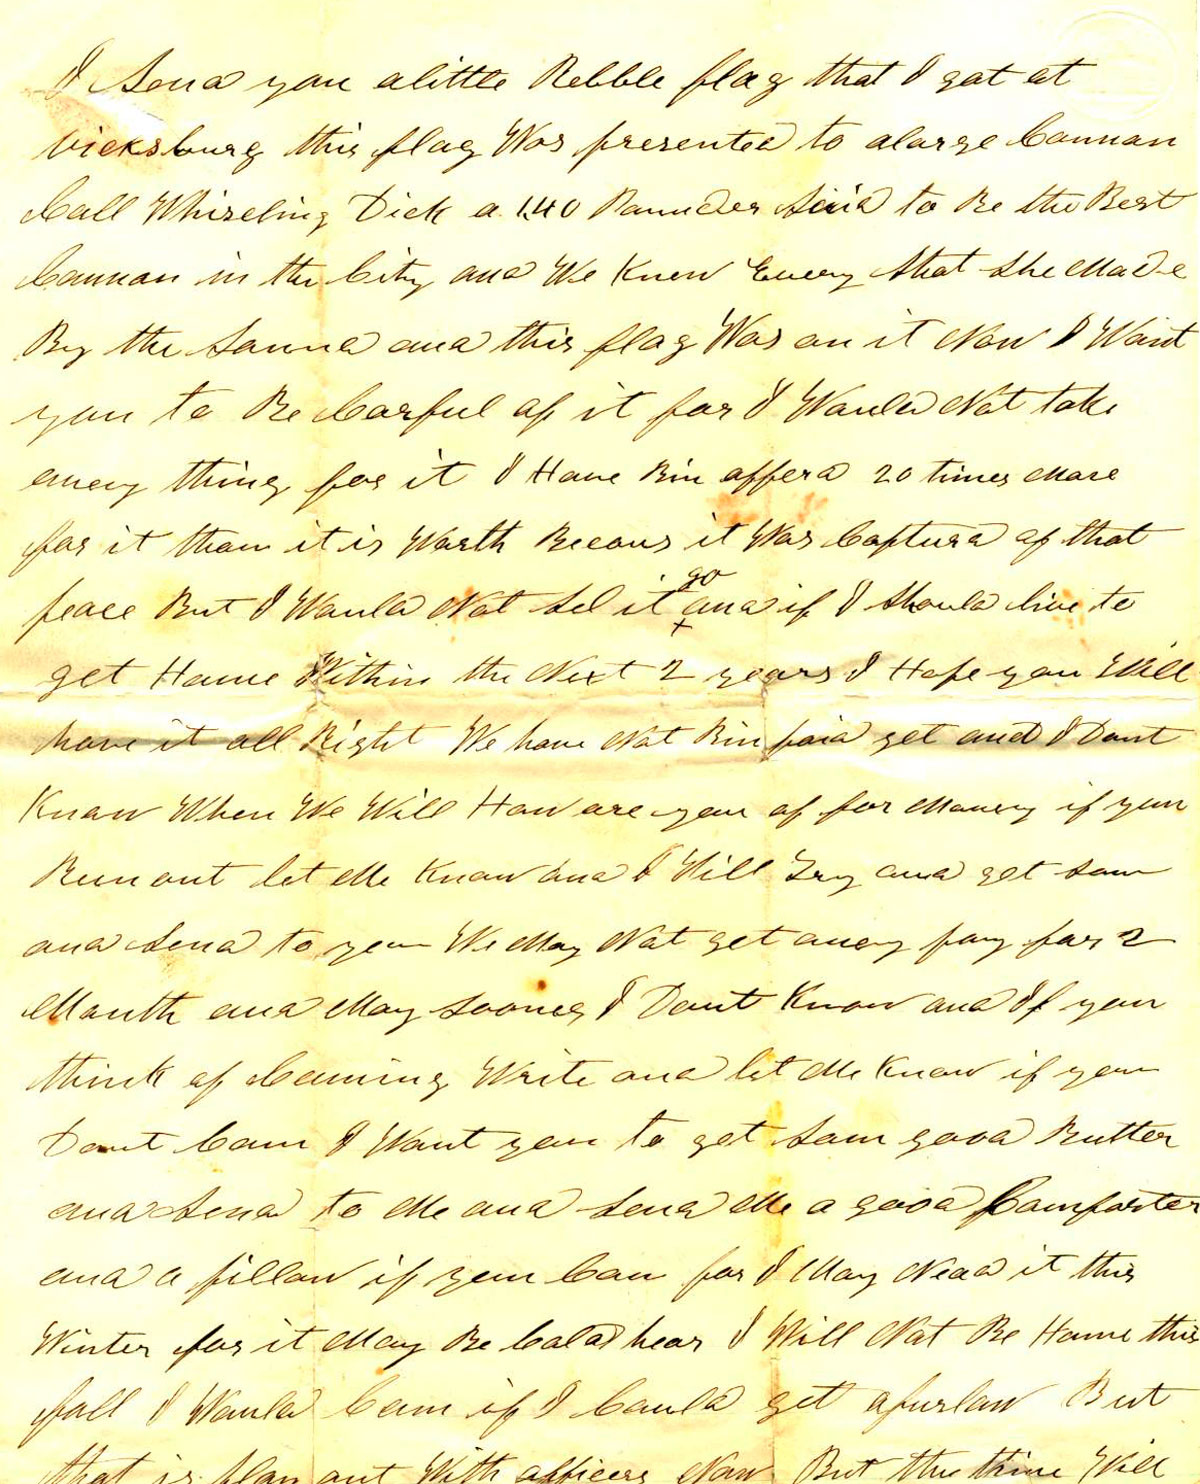 I Send you alittle Rebble flag that I got at
vicksburg this flag Was presented to alarge Cannan
Call Whiseling Dick a 140 Pounder Said to Be the Best
Cannan in the City and We Knew Every that She Made
By the Sound and this flag Was on it Now I Want
you to Be Carful of it for I Would Not take
eney thing for it I Have Bin afferd 20 times More
for it than it is Worth Becaus it Was Capturd of that
peace But I Would Not Sel it go and if I Should live to
get Home Within the Next 2 years I Hope you Will
have it all Right We have Not Bin paid yet and I Dont
Know When We Will How are you of for Money if you
Run out let Me Know and I Will Try and get Som
and Send to you We May Not get aney pay for 2
Month and May Sooner I Dont Know and If you
think of Coming Write and let Me Know if you
Dont Com I Want you to get Som good Butter
and Send to Me and Send Me a good Comforter
and a pillow if you Can for I May Nead it this
Winter for it May Be Cold hear I Will Not Be Home this
fall I Would Com if I Could get afurlow But
that is plan out With officers Now But the thine Will